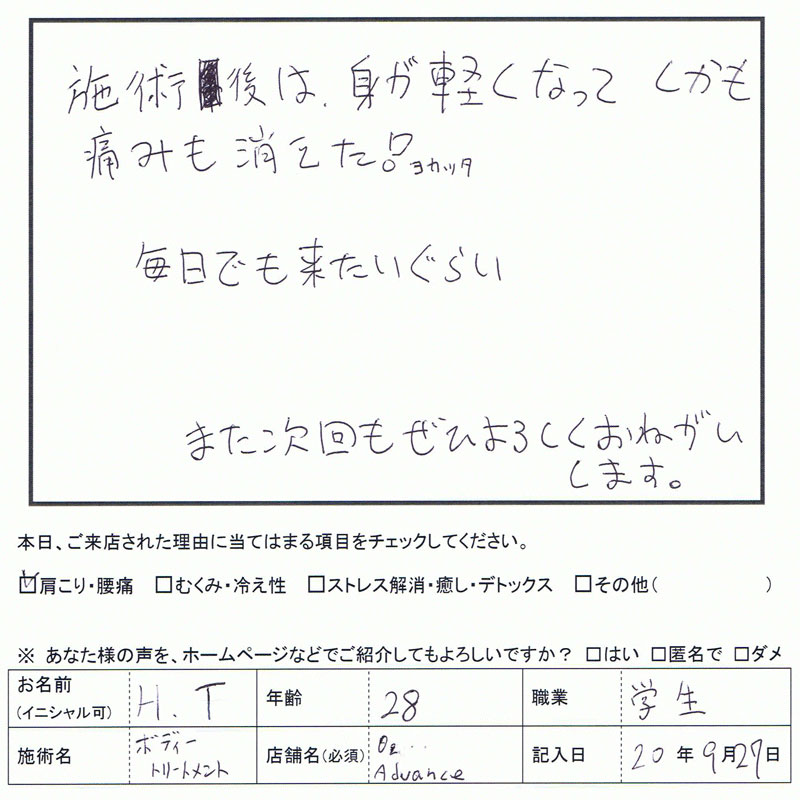 施術後は、身が軽くなって しかも
痛みも消えた。ヨカッタ
毎日でも来たいぐらい
また次回もぜひよろしくおねがい
します。
本日、ご来店された理由に当てはまる項目をチェックしてください。
☑肩こり・腰痛 □むくみ・冷え性 □ストレス解消・癒し・デトックス □その他( )
※ あなた様の声を、ホームページなどでご紹介してもよろしいですか? □はい □匿名で □ダメ
お名前
(イニシャル可) H.T 年齢 28 職業 学生
施術名 ボディー
トリートメント 店舗名(必須) Advance 記入日 20年9月27日